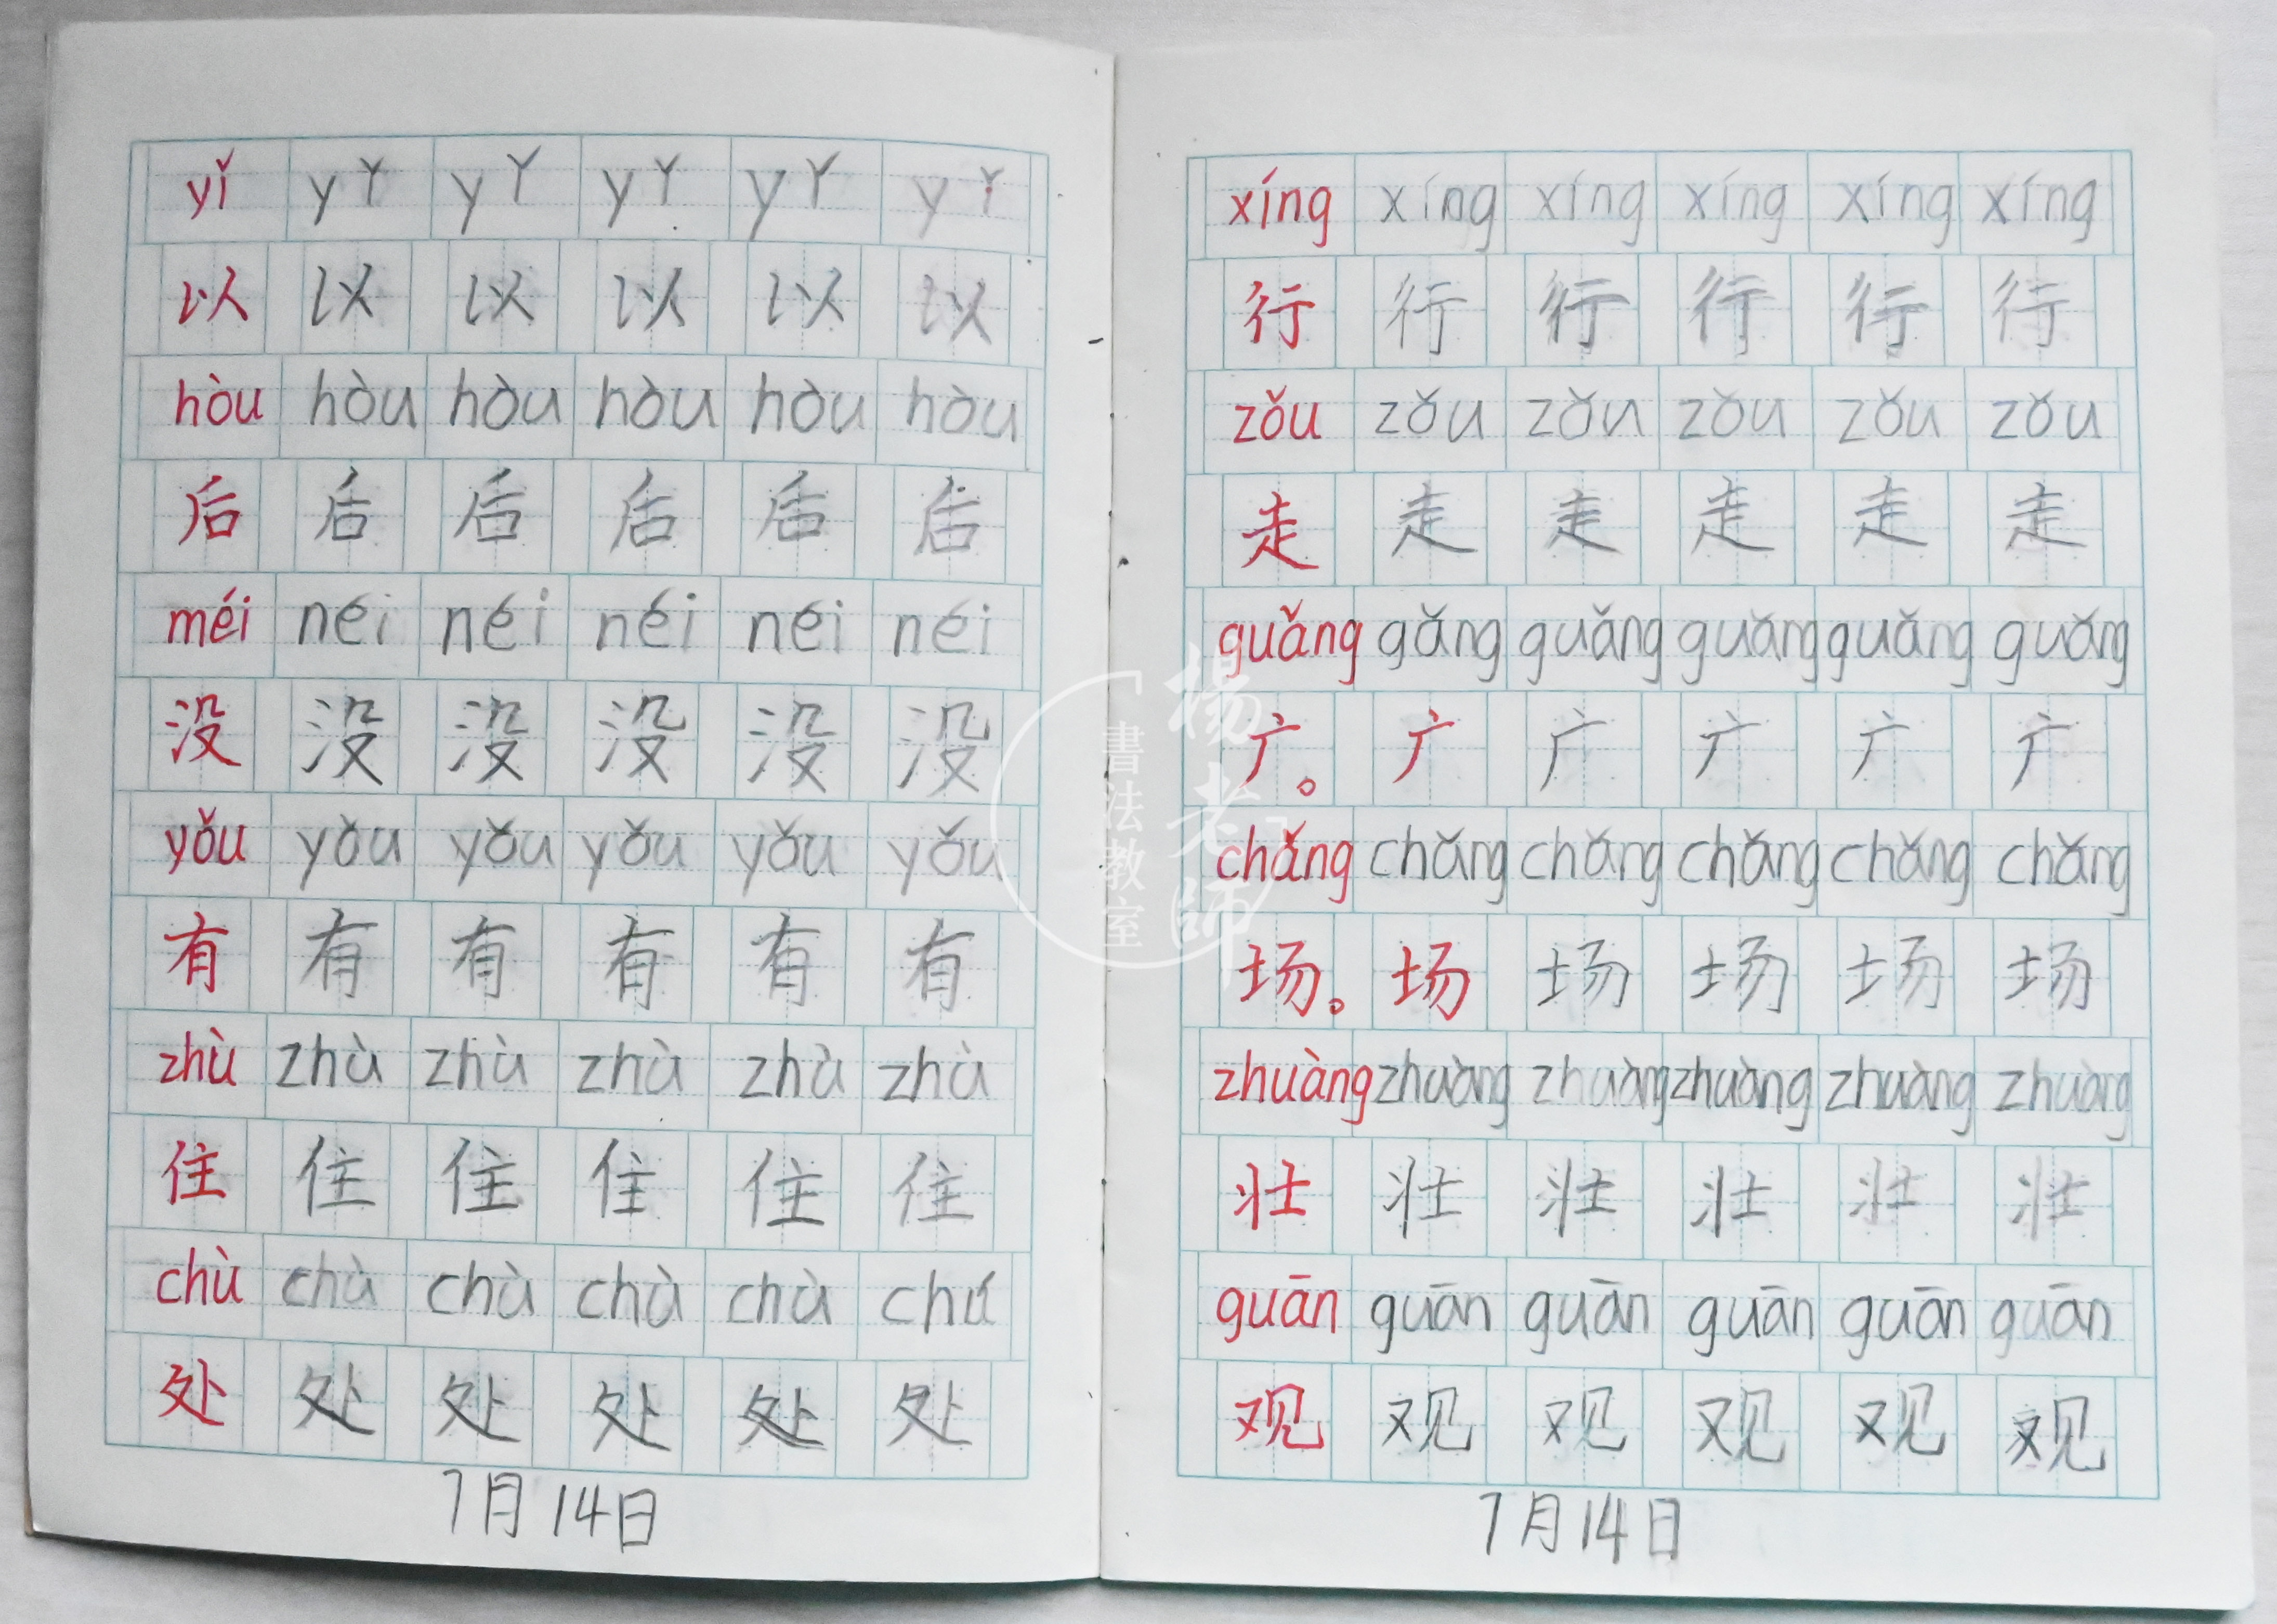 yǐ yǐ yǐ yǐ yǐ yǐ
以 以 以 以 以 以
hòu hòu hòu hòu hòu hòu
后 后 后 后 后 后
méi néi néi néi néi néi
没 没 没 没 没 没
yǒu yǒu yǒu yǒu yǒu yǒu
有 有 有 有 有 有
zhù zhù zhù zhù zhù zhù
住 住 住 住 住 住
chù chù chù chù chù chú
处 处 处 处 处 处
7月14日
xíng xíng xíng xíng xíng xíng
行 行 行 行 行 行
zǒu zǒu zǒu zǒu zǒu zǒu
走 走 走 走 走 走
guǎng gǎng guǎng guǎng guǎng guǎng
广。 广 广 广 广 广
chǎng chǎng chǎng chǎng chǎng chǎng
场。 场 场 场 场 场
zhuàng zhuàng zhuàng zhuàng zhuàng zhuàng
壮 壮 壮 壮 壮 壮
guān guān guān guān guān guān
观 观 观 观 观 观
7月14日
「楊老師」
書法教室